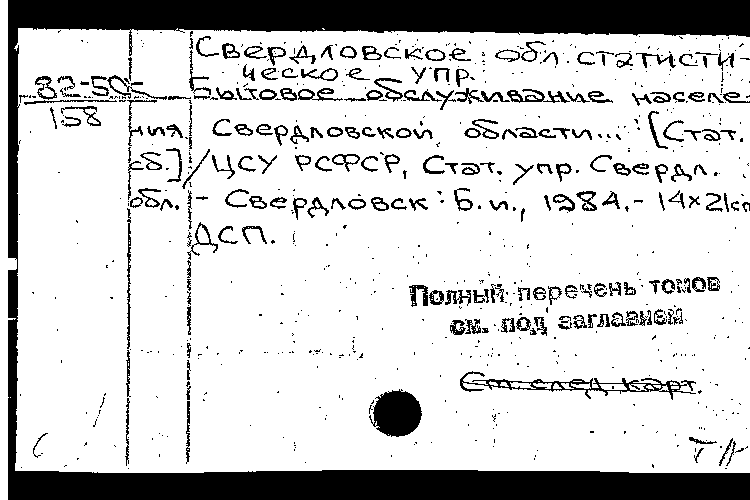 Свердловское обл. статисти-
ческое упр.
82-50-
158
Бытовое обслуживание населе-
ния Свердловской области... [Стат.
сб.] / ЦСУ РСФСР, Стат. упр. Свердл.
обл. - Свердловск: Б.и., 1984. - 14×21см
ДСП.
Полный перечень томов
см. под заглавием
См. след. карт.